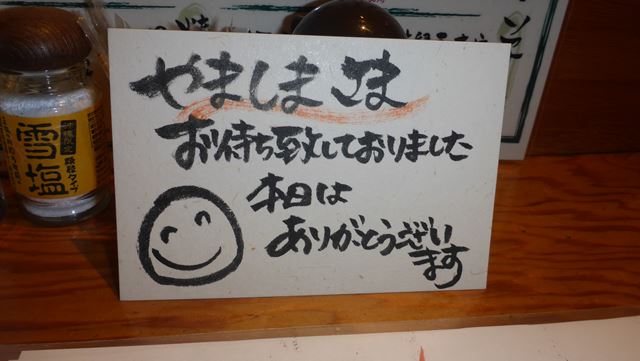 やましまさま
お待ち致しておりました
本日は
ありがとうござい
ます
雪塩
顆粒タイプ